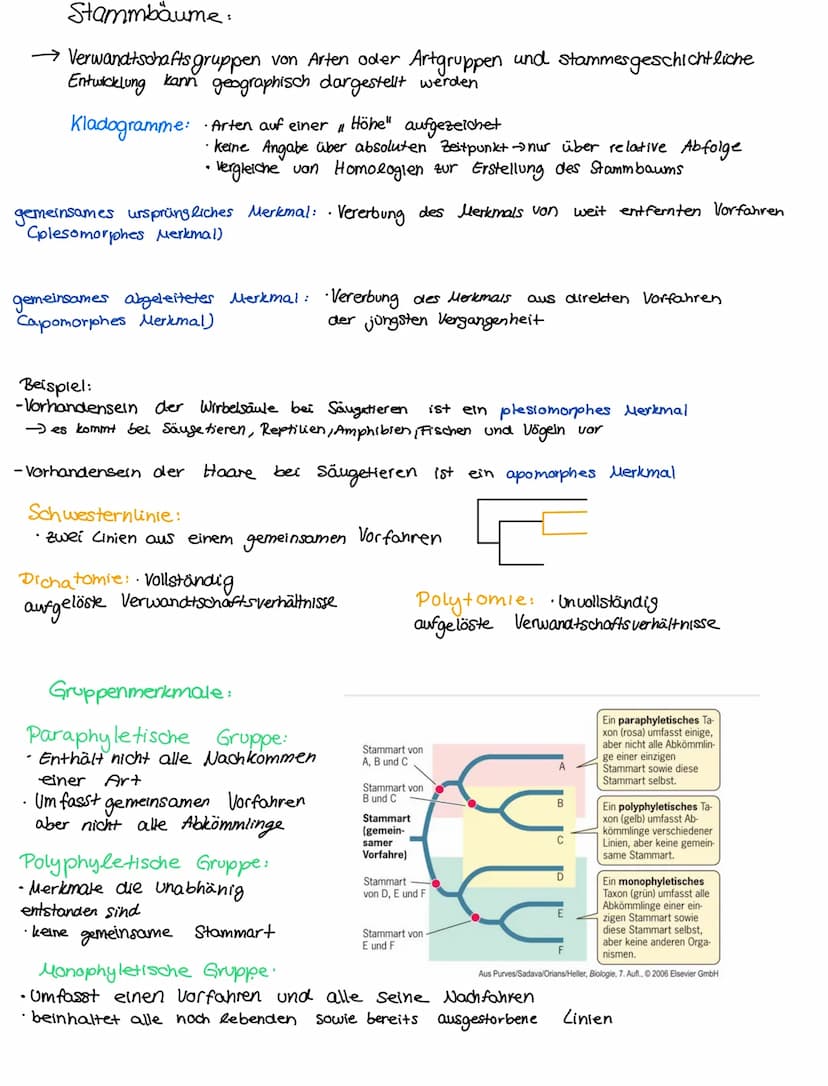 Stammbäume:
→ Verwandtschaftsgruppen von Arten oder Artgruppen und stammesgeschichtliche
Entwicklung kann geographisch dargestellt werden
Kladogramme: · Arten auf einer „Höhe" aufgezeichet
· keine Angabe über absoluten Zeitpunkt → nur über relative Abfolge
· Vergleiche von Homologien zur Erstellung des Stammbaums
gemeinsames ursprüngliches Merkmal: · Vererbung des Merkmals von weit entfernten Vorfahren
(plesomorphes Merkmal)
gemeinsames abgeleitetes Merkmal: · Vererbung des Merkmals aus direkten Vorfahren
(apomorphes Merkmal) der jüngsten Vergangenheit
Beispiel:
- Vorhandensein der Wirbelsäule bei Säugetieren ist ein plesiomorphes Merkmal
→ es kommt bei Säugetieren, Reptilien, Amphibien, Fischen und Vögeln vor
- Vorhandensein der Haare bei Säugetieren ist ein apomorphes Merkmal
Schwesternlinie:
· zwei Linien aus einem gemeinsamen Vorfahren
Dichatomie: · Vollständig
aufgelöste Verwandtschaftsverhältnisse
Polytomie: · Unvollständig
aufgelöste Verwandtschaftsverhältnisse
Gruppenmerkmale:
Paraphyletische Gruppe:
· Enthält nicht alle Nachkommen
einer Art
· Umfasst gemeinsamen Vorfahren
aber nicht alle Abkömmlinge
Polyphyletische Gruppe:
· Merkmale die unabhänig
entstanden sind
· keine gemeinsame Stammart
Monophyletische Gruppe:
· Umfasst einen Vorfahren und alle seine Nachfahren
· beinhaltet alle noch lebenden sowie bereits ausgestorbene Linien
Stammart von
A, B und C
Stammart von
B und C
Stammart
(gemein-
samer
Vorfahre)
Stammart
von D, E und F
Stammart von
E und F
A
B
C
D
E
F
Ein paraphyletisches Ta-
xon (rosa) umfasst einige,
aber nicht alle Abkömmlin-
ge einer einzigen
Stammart sowie diese
Stammart selbst.
Ein polyphyletisches Ta-
xon (gelb) umfasst Ab-
kömmlinge verschiedener
Linien, aber keine gemein-
same Stammart.
Ein monophyletisches
Taxon (grün) umfasst alle
Abkömmlinge einer ein-
zigen Stammart sowie
diese Stammart selbst,
aber keine anderen Orga-
nismen.
Aus Purves/Sadava/Orians/Heller, Biologie, 7. Aufl., © 2006 Elsevier GmbH